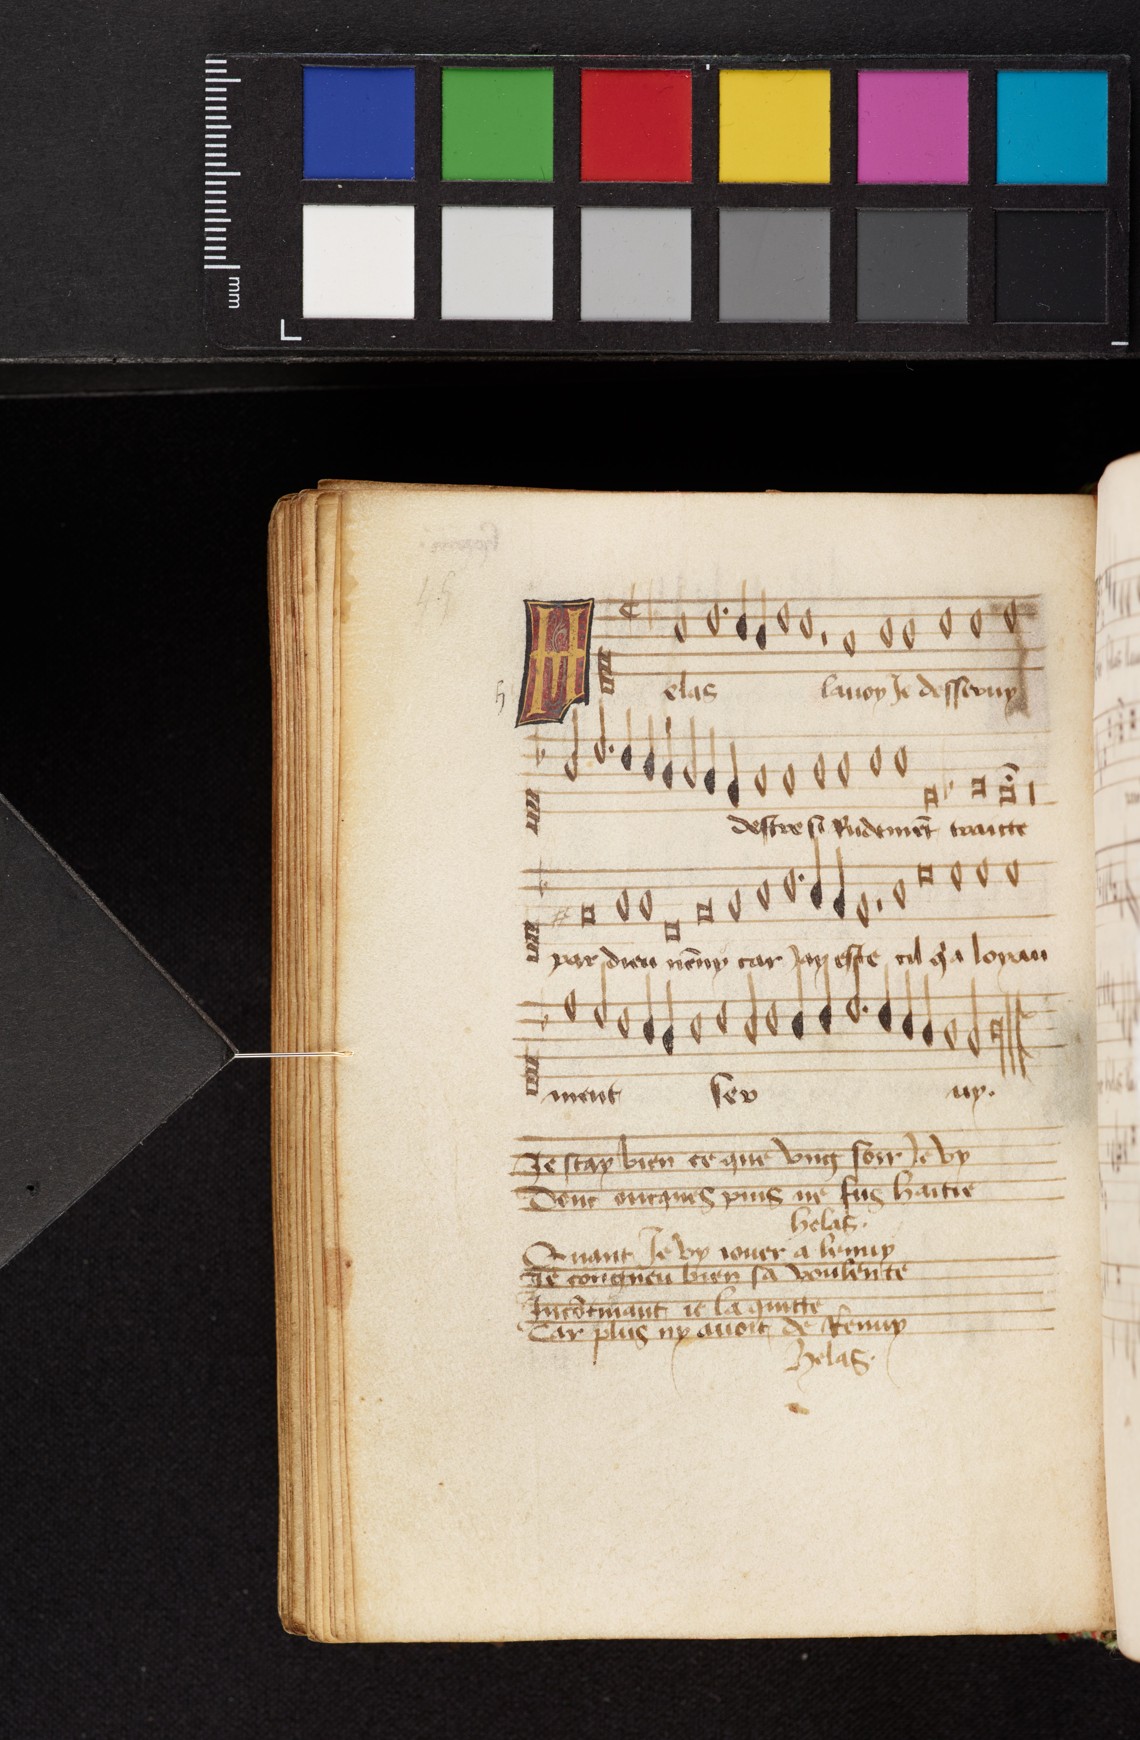 mm
Helas lavoy Je desseruy
destre si Rudemēt traicte
par dieu nēny car Jay este cil q̄ a loyau
ment ser uy.
Je scay bien ce que vng soir Je vy
Dont oncques puis ne fus haitie
helas.
Quant Je vy iouer a lenuy
Je congneu bien sa voulente
Incōtinant ie la quitte
Car plus ny auoit de Remuy
helas.